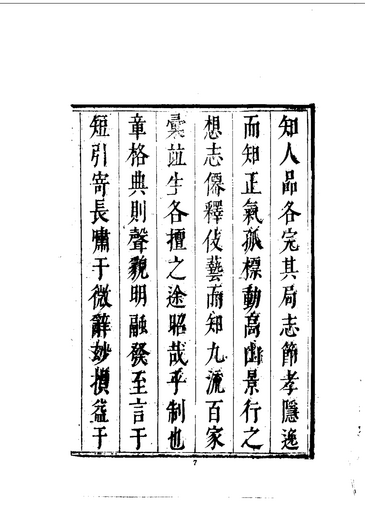 知人品各完其局志節孝隱逸
而知正氣孤標動高山景行之
想志僊釋伎藝而知九流百家
彙茁生各擅之途昭哉乎制也
章格典則聲貌明融發至言于
短引寄長嘯于微辭妙損益于
7